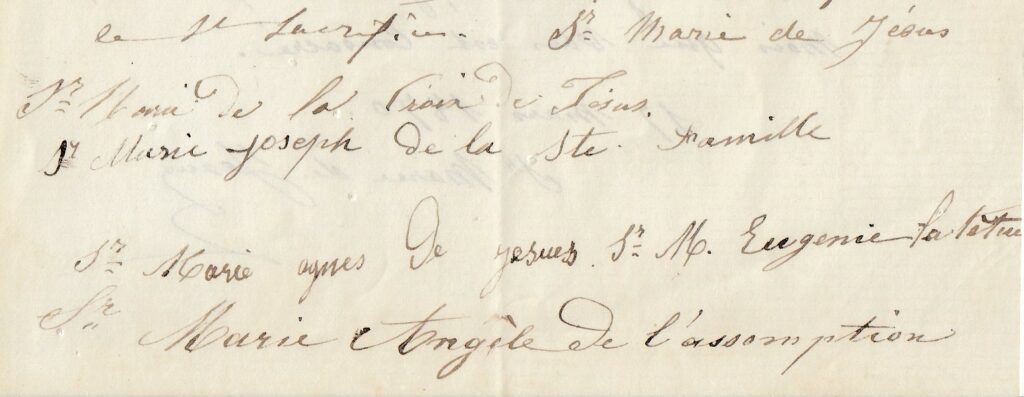 le St Sacrifice. Sr Marie de Jésus
Sr Marie de la Croix de Jésus.
Sr Marie joseph de la Ste. Famille
Sr Marie agnes De yesues. Sr M. Eugenie
Sr Marie Angèle de l'assomption